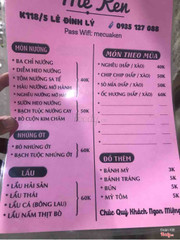 Mẹ Ken
K118/5 LÊ ĐÌNH LÝ
0935 127 688
Pass Wifi: mecuaken
MÓN NƯỚNG
- BA CHỈ NƯỚNG
- DIỀM HEO NƯỚNG
- TÔM NƯỚNG SA TẾ
- HÀU NƯỚNG MỠ HÀNH
- NGHÊU NƯỚNG MỠ HÀNH
- SƯỜN CÂY NƯỚNG
- NẦM HEO NƯỚNG
- BẠCH TUỘC NƯỚNG
- BÒ CUỘN KIM CHÂM
60K
NHÚNG ỚT
- BÒ NHÚNG ỚT
- BẠCH TUỘC NHÚNG ỚT
60K
LẨU
- LẨU HẢI SẢN
- LẨU THÁI
- LẨU CÁ (BÔNG LAU)
- LẨU NẤM THỊT BÒ
MÓN THEO MÙA
- NGHÊU (HẤP / XÀO)
- CHIP CHIP (HẤP / XÀO)
- SÒ MÍA (HẤP / XÀO)
- ỐC HƯƠNG (HẤP / XÀO)
40K
ĐỒ THÊM
- BÁNH MỲ
- BÁNH TRÁNG
- BÚN
- MỲ TÔM
3K
5K
5K
5K
Chúc Quý Khách Ngon Miệng